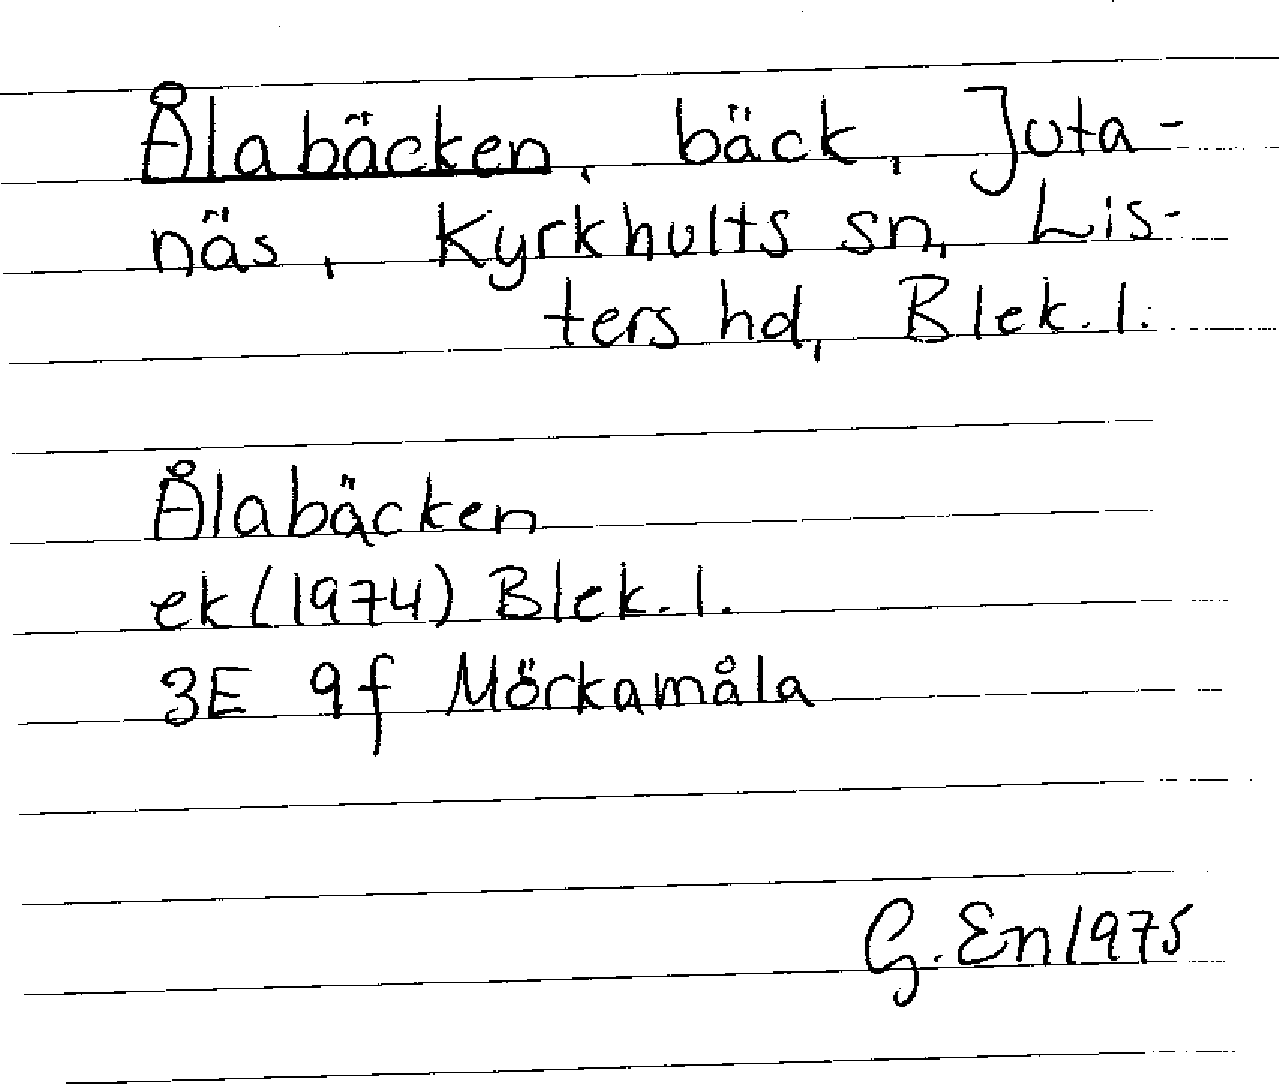 Ålabäcken, bäck, Juta-
näs, Kyrkhults sn, Lis-
ters hd, Blek. l.
Ålabäcken
ek (1974) Blek. l.
3E 9f Mörkamåla
G. En 1975